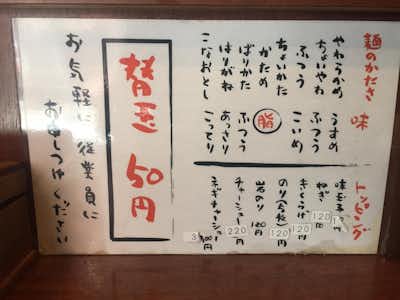 麺のかたさ
やわらかめ
ちょいやわ
ふつう
ちょいかた
かため
ばりかた
はりがね
こなおとし
味
うすめ
ふつう
こいめ
脂
ふつう
あっさり
こってり
トッピング
味玉子
ねぎ 120円
きくらげ 120円
のり 120円
岩のり 120円
チャーシュー 220円
ネギチャーシュー 300円
替玉 50円
お気軽に従業員に
お申しつけください